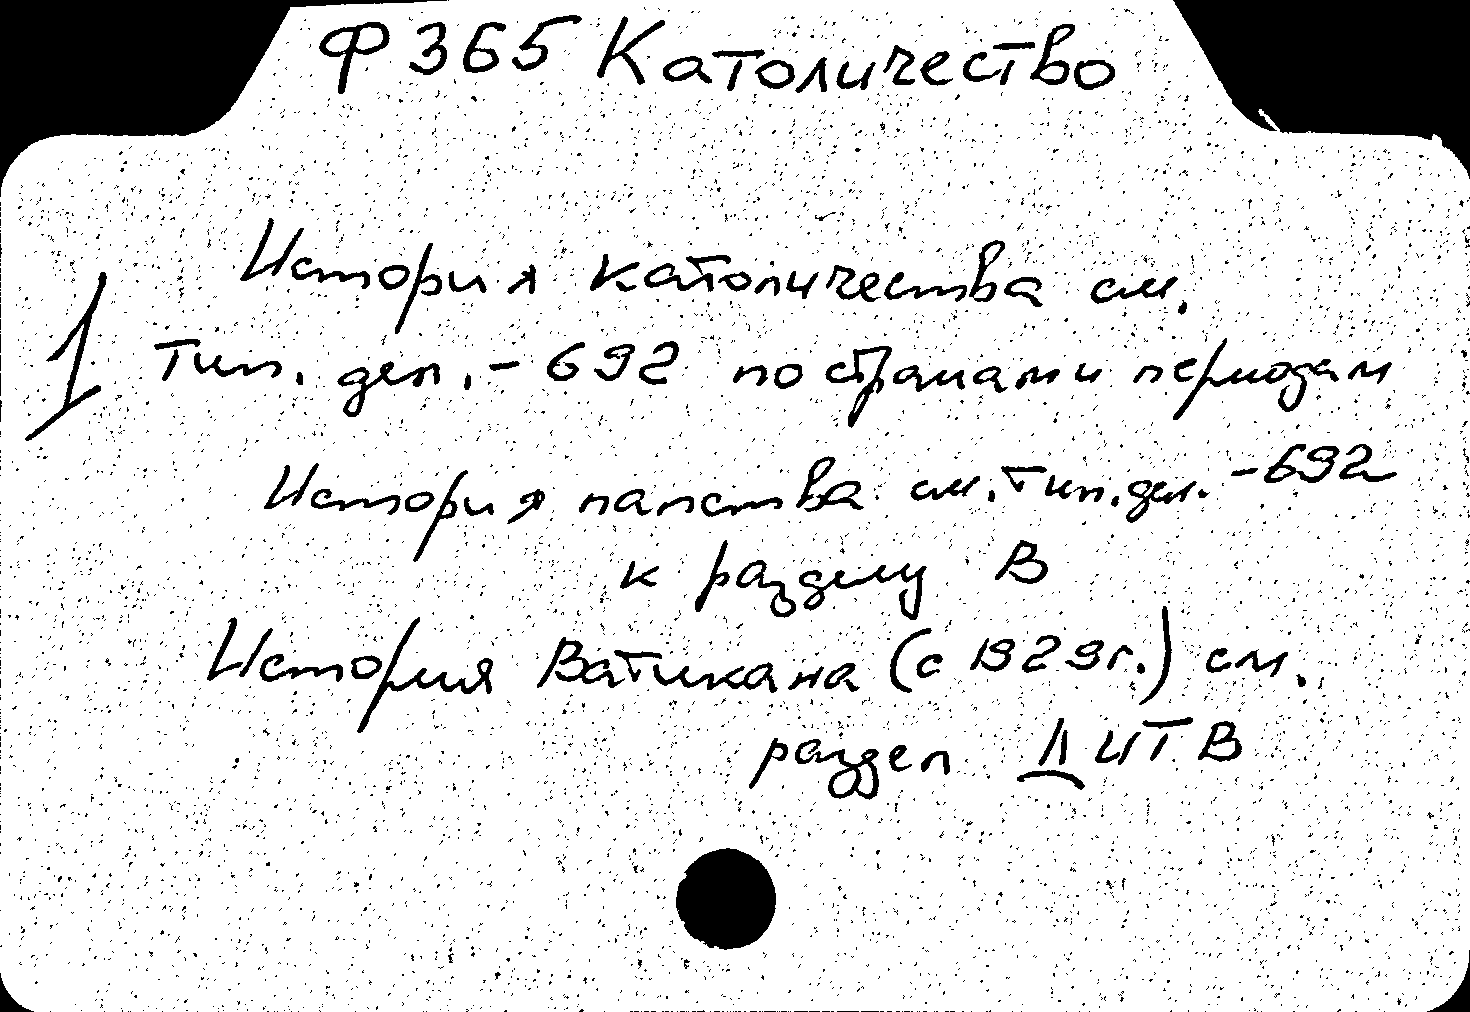 Ф 365 Католичество
История католичества см.
тип. дел. - 692 по странам и периодам
История папства см. тип. дел. - 692
к разделу В
История Ватикана (с 1929 г.) см.
раздел Д ИТ В